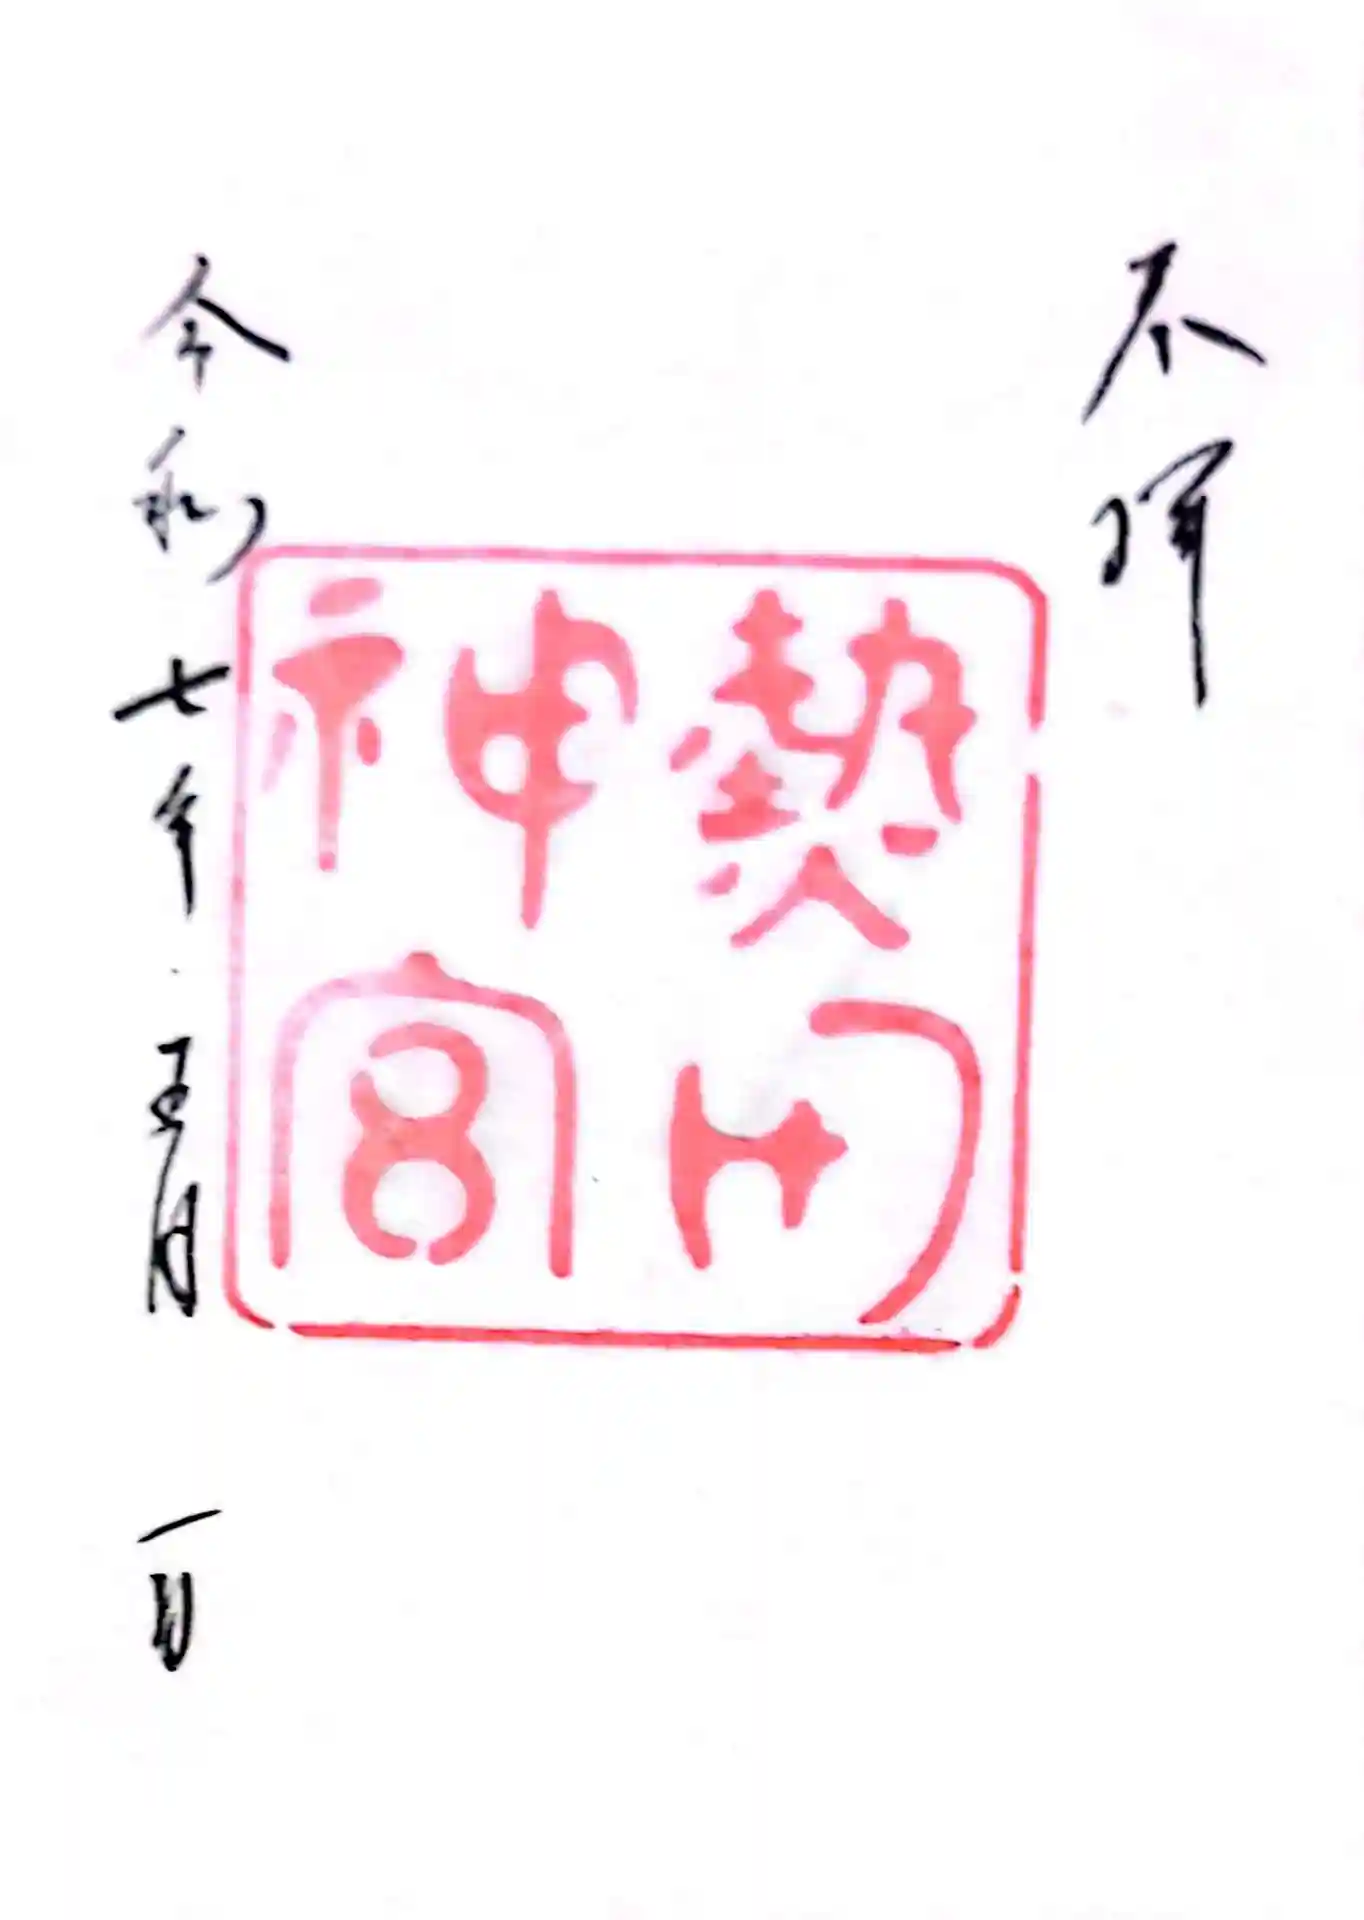 奉拝
熱田
神宮
令和七年 五月 一日